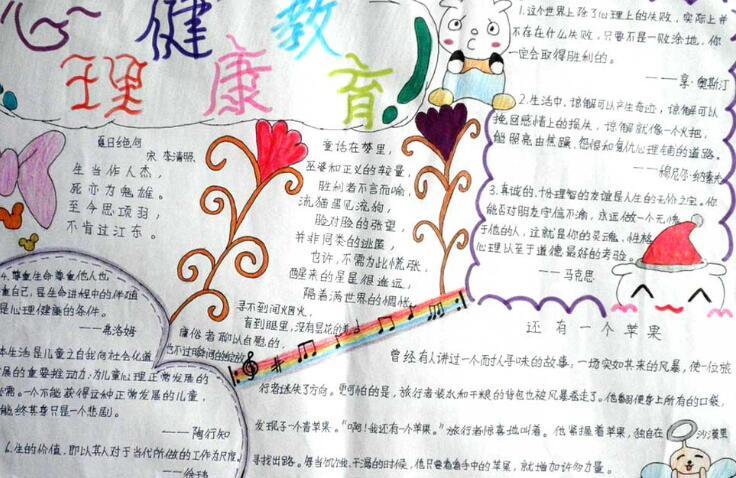 心理健康教育
夏日绝句
宋 李清照
生当作人杰,
死亦为鬼雄。
至今思项羽,
不肯过江东。
童话在梦里,
巫婆和正义的较量,
胜利者不言而喻,
流猫遇见流狗,
脸对脸的张望,
并非同类的逃匿,
也许,不需为此慌张,
醒来的星星很遥远,
隔着满世界的惆怅
寻不到人间烟火,
盲到眼里,没有昙花的美
庸俗者聊以自慰的,
也不过瞬间的
1.这个世界上除了心理上的失败,实际上并
不存在什么失败,只要不是一败涂地,你
一定会取得胜利的。
——亨·奥斯汀
2.生活中,谅解可以产生奇迹,谅解可以
挽回感情上的损失,谅解就像一个火把,
能照亮由焦躁、怨恨和复仇心理铺的道路。
——穆尼尔·纳素夫
3.真诚的、十分理智的友谊是人生的无价之宝。你
能否对朋友守信不渝,永远做一个无愧
于他的人,这就是你的灵魂、性格、
心理以至于道德最好的考验。
——马克思
4.尊重生命尊重他人也
重自己,是生命进程中的伴随
是心理健康的条件。
——弗洛姆
本生活是儿童之自我向社会化道
展的重要推动力;为儿童心理正常发展的
需。一个不能获得这种正常发展的儿童,
能终其身只是一个悲剧。
——陶行知
6.生的价值,即以其人对于当代所做的工作为尺度。
——徐玮
还有一个苹果
曾经有人讲过一个耐人寻味的故事:一场突如其来的风暴,使一位旅
行者迷失了方向。更可怕的是,旅行者装水和干粮的背包也被风暴卷走了。他翻遍身上所有的口袋,
发现了一个青苹果。“啊!我还有一个苹果。”旅行者惊喜地叫着。他紧握着苹果,独自在沙漠里
寻找出路。每当饥饿、干渴的时候,他只要看看手中的苹果,就增加许分力量。